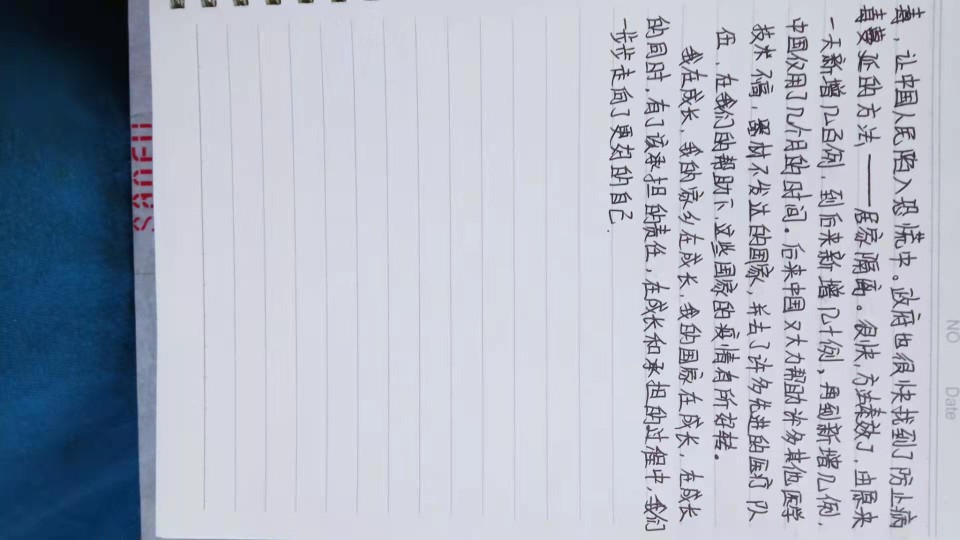 NO
Date
毒，让中国人民陷入恐慌中。政府也很快找到了防止病
毒蔓延的方法——居家隔离。很快，方法奏效了，由原来
一天新增几百例，到后来新增几十例，再到新增几例，
中国仅用了几个月的时间。后来中国又大力帮助许多其他医学
技术不高，器材不发达的国家，并去了许多先进的医疗队
伍，在我们的帮助下，这些国家的疫情有所好转。
我在成长，我的家乡在成长，我的国家在成长，在成长
的同时，有了该承担的责任，在成长和承担的过程中，我们
一步步走向了更好的自己.